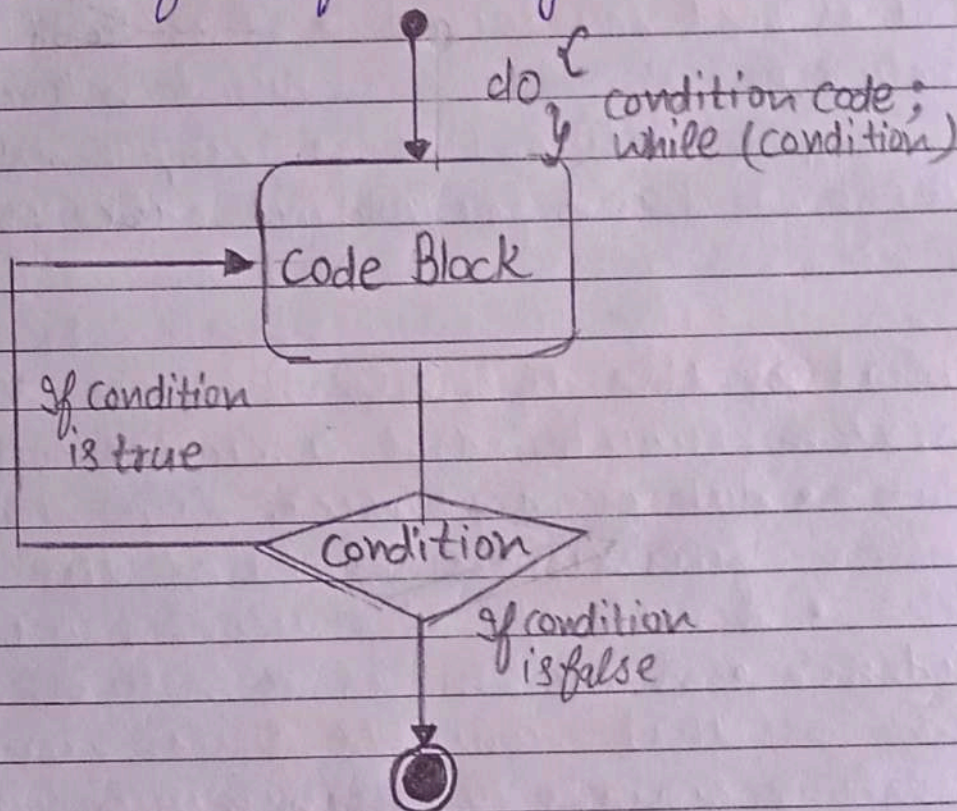 do {
condition code;
} while (condition)
Code Block
If condition
is true
condition
If condition
is false